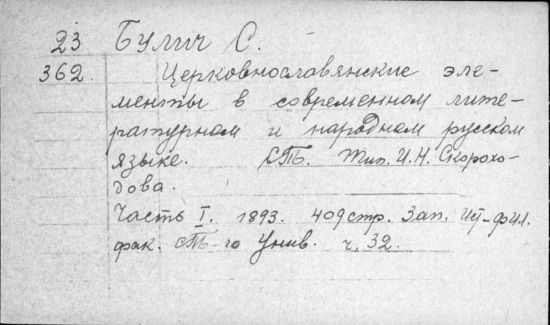 23 Булич С.
362. Церковнославянские эле-
менты в современном лите-
ратурном и народном русском
языке. СПб. Тип. И.Н. Скорохо-
дова.
Часть I. 1893. 409 стр. Зап. Ист-фил.
фак. СПб-го Унив. ч. 32.